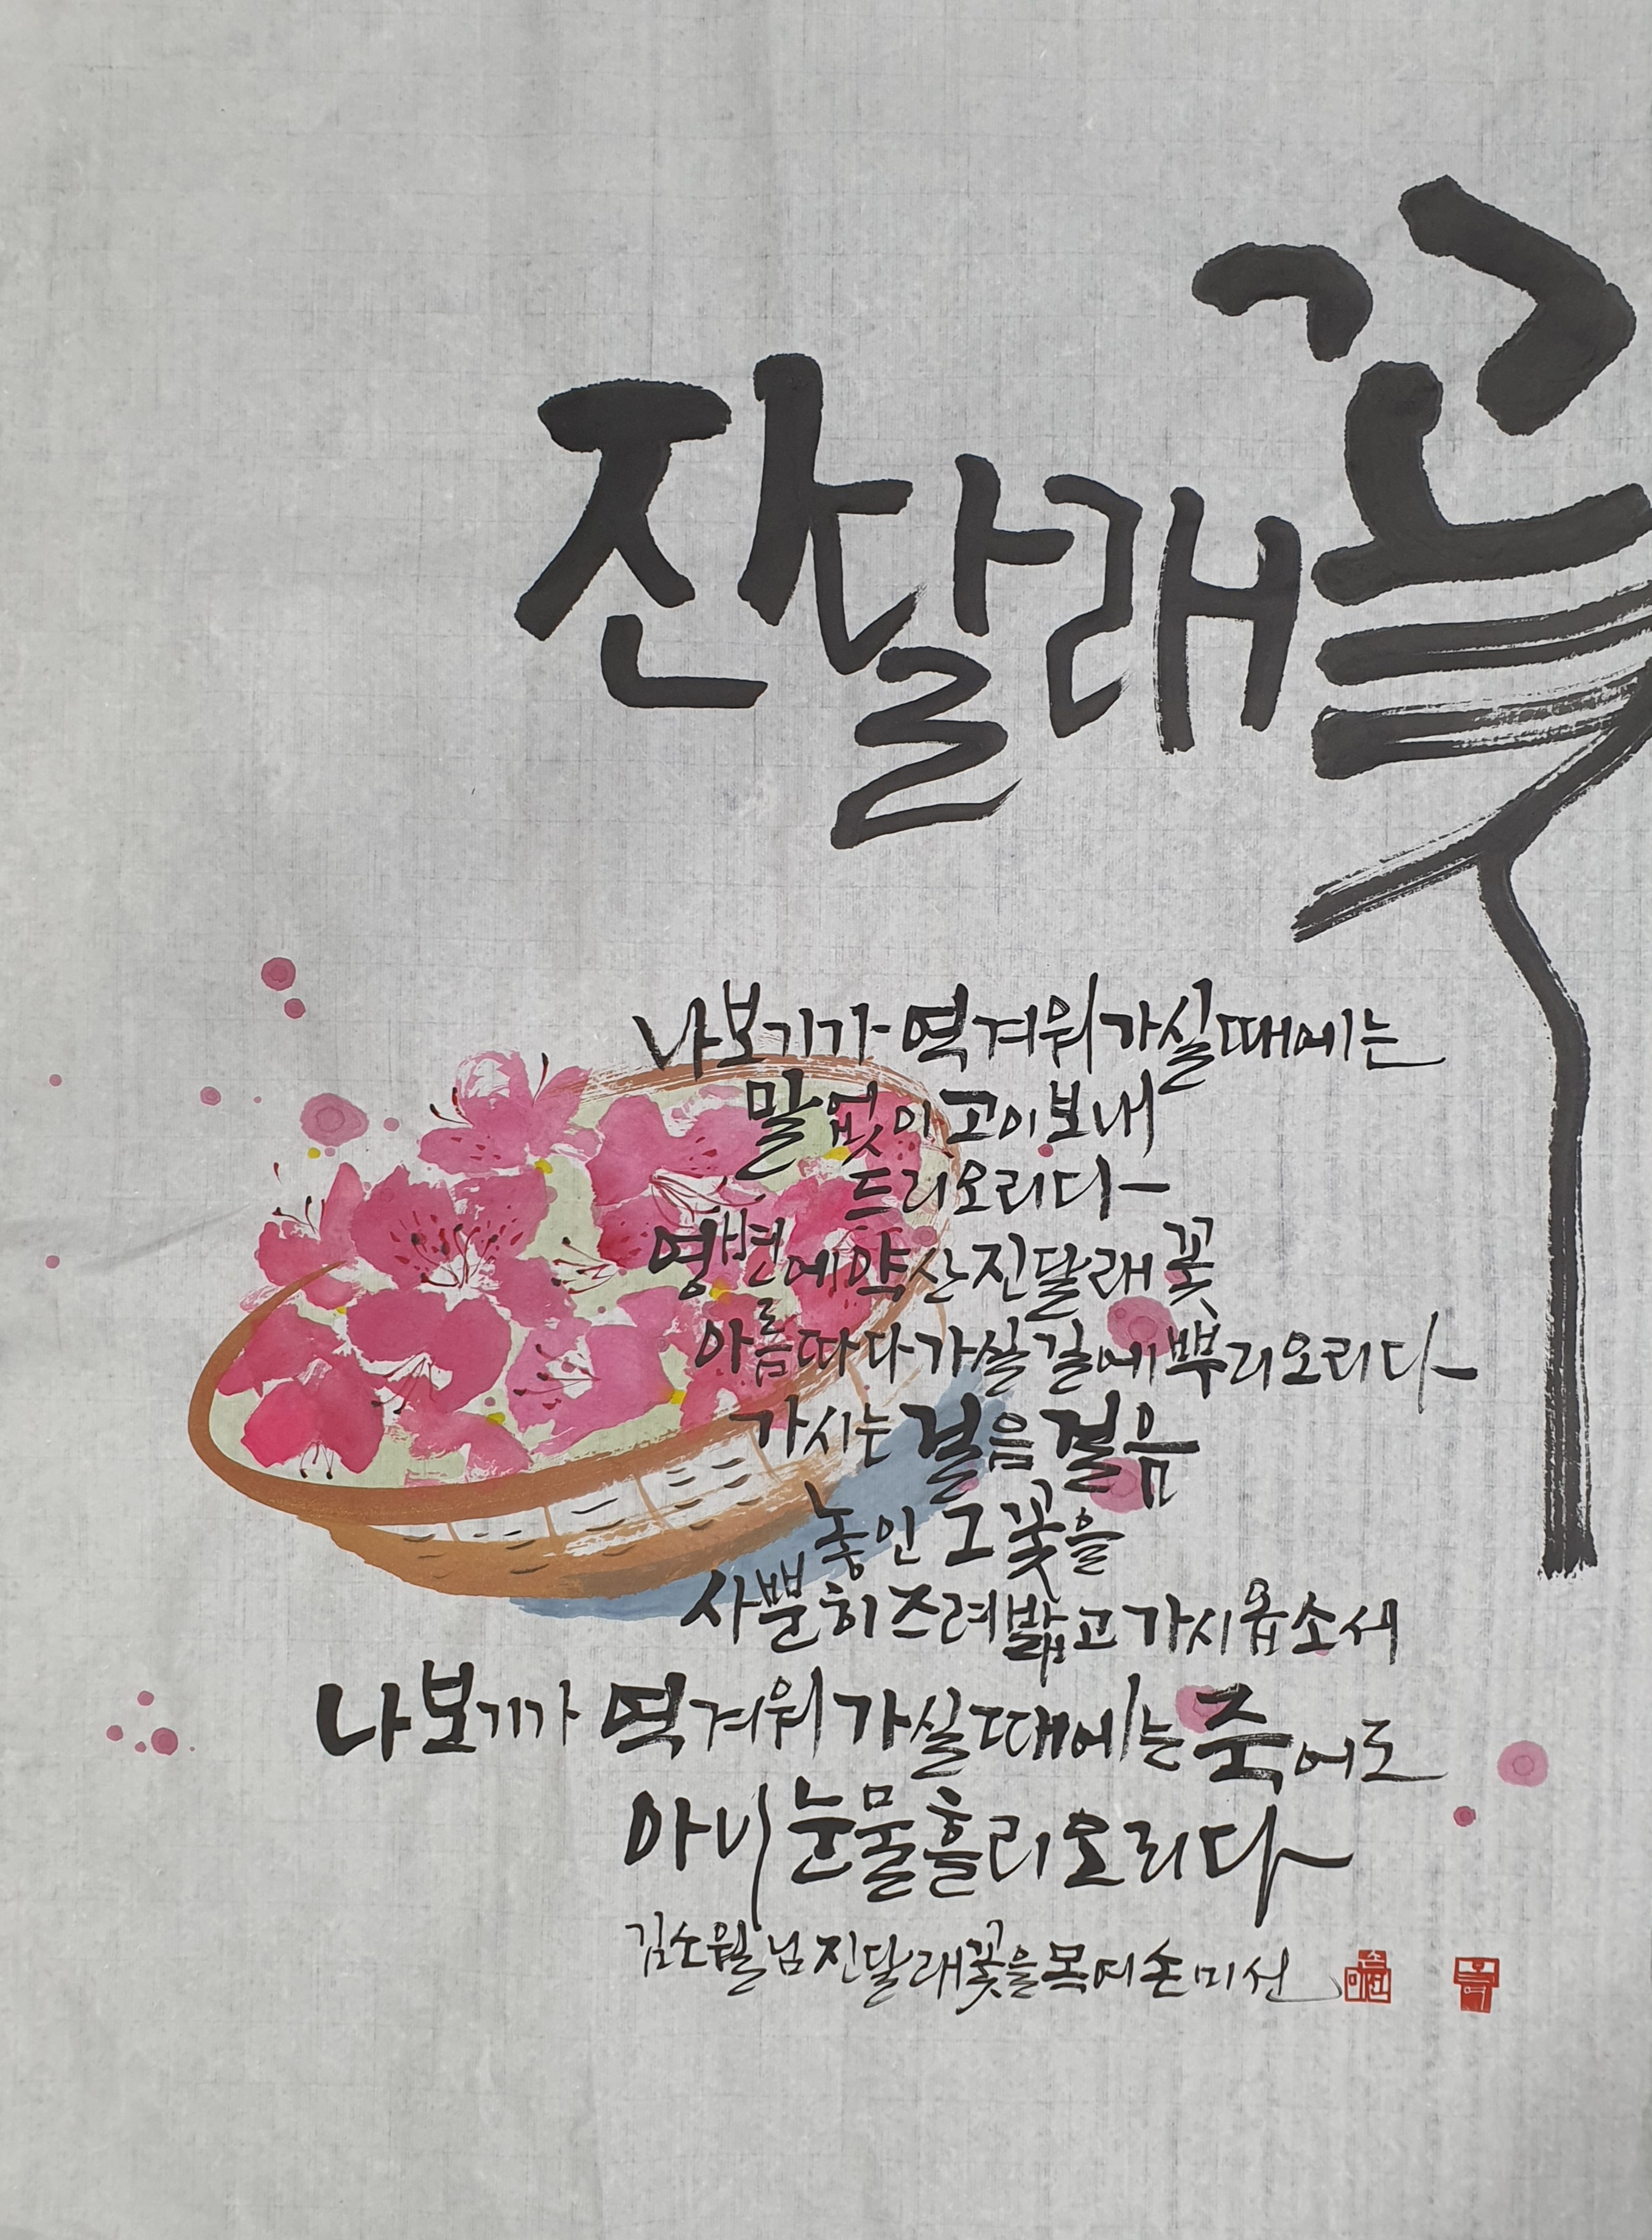 진달래꽃
나보기가 역겨워 가실때에는
말없이 고이보내
드리오리다
영변에약산진달래꽃
아름따다가실길에뿌리오리다
가시는걸음걸음
놓인그꽃을
사뿐히즈려밟고가시옵소서
나보기가 역겨워 가실때에는죽어도
아니눈물흘리오리다
김소월님 진달래꽃을 목여 손미선